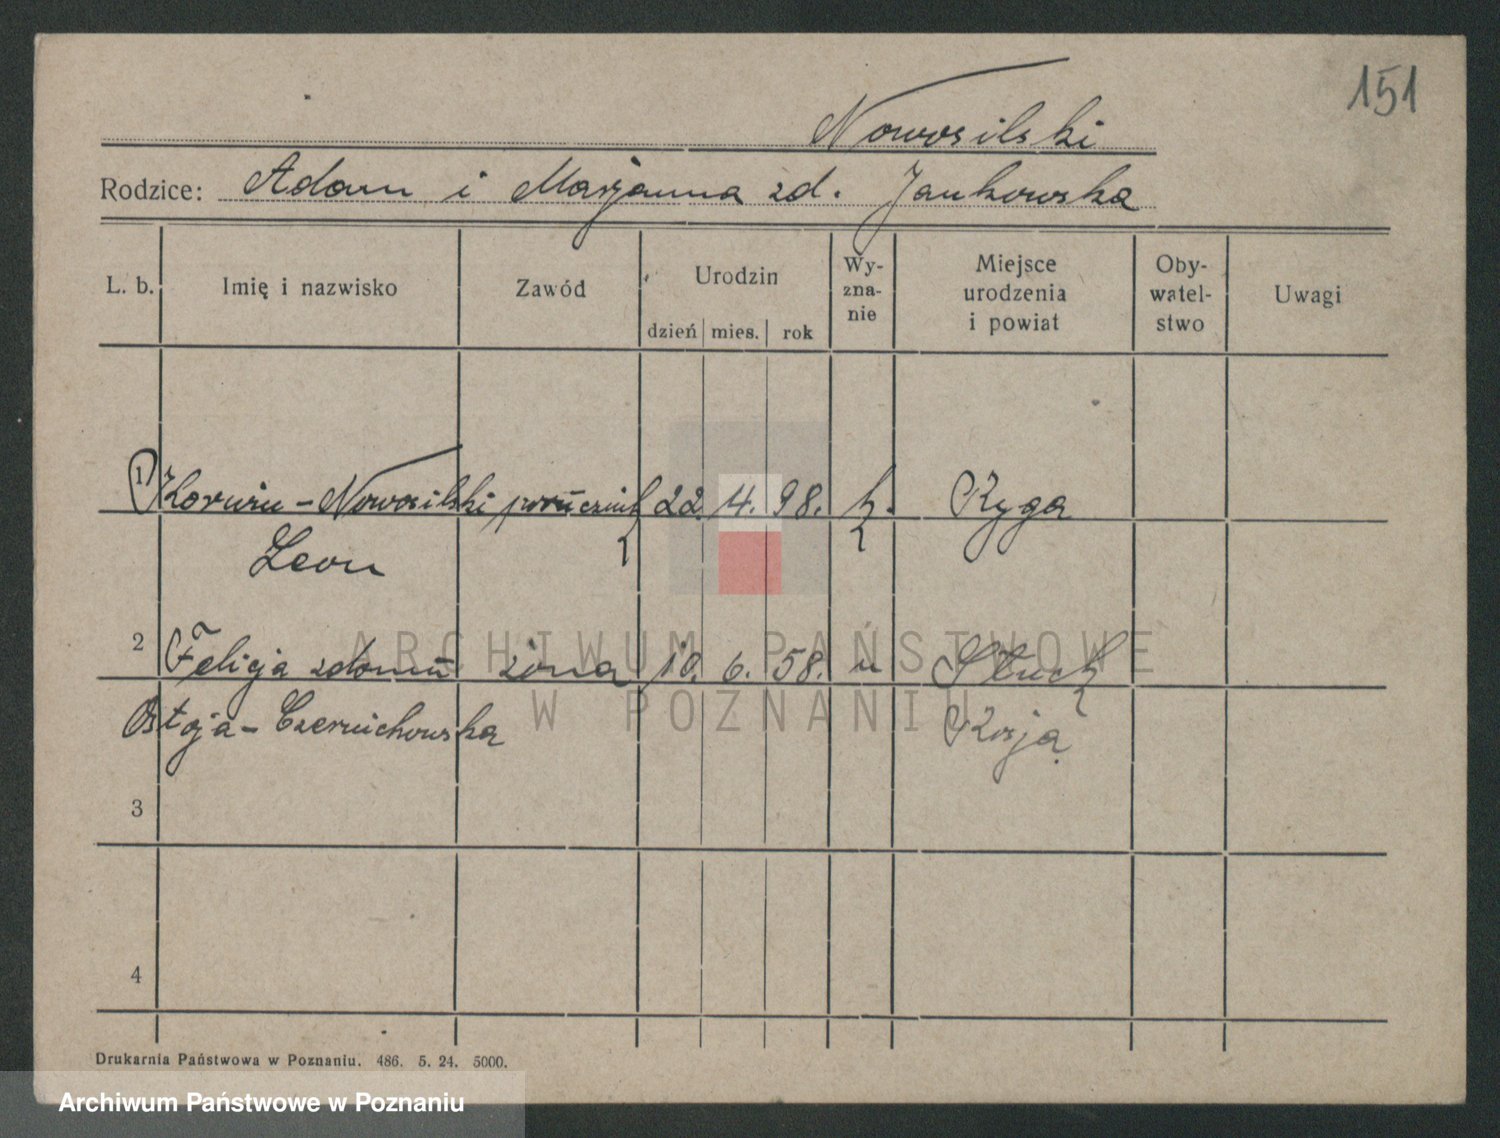 151
Nowosilski
Rodzice: Adam i Marjanna zd. Jankowska
L. b. Imię i nazwisko Zawód Urodzin Wy- Miejsce Oby- Uwagi
zna- urodzenia watel-
nie i powiat stwo
dzień mies. rok
1 Korwin-Nowosilski porucznik 22. 4. 98. k. Ryga
Leon
2 Felicja z domu żona 10. 6. 58. " Słuck
Ostoja-Czernichowska Rosja
3
4
Drukarnia Państwowa w Poznaniu. 486. 5. 24. 5000.
ARCHIWUM PAŃSTWOWE
W POZNANIU
Archiwum Państwowe w Poznaniu